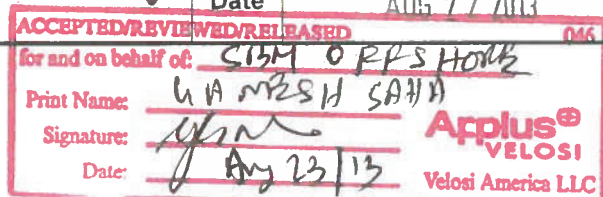 Date AUG 22 2013
ACCEPTED/REVIEWED/RELEASED 046
for and on behalf of: SBM OFFSHORE
Print Name: GANESH SAHA
Signature:
Date: Aug 23/13
Applus⊕
VELOSI
Velosi America LLC